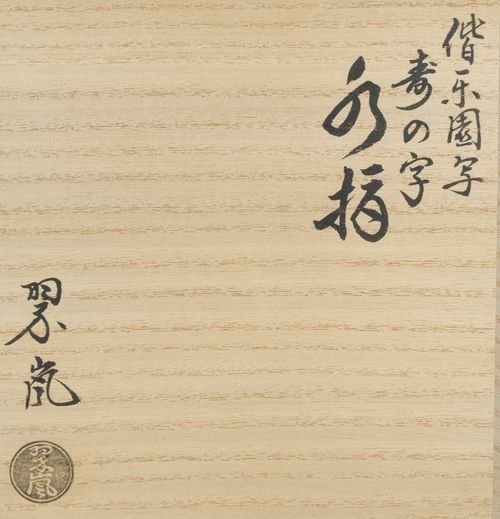 偕楽園写
寿の字
水指
翠嵐
翠嵐